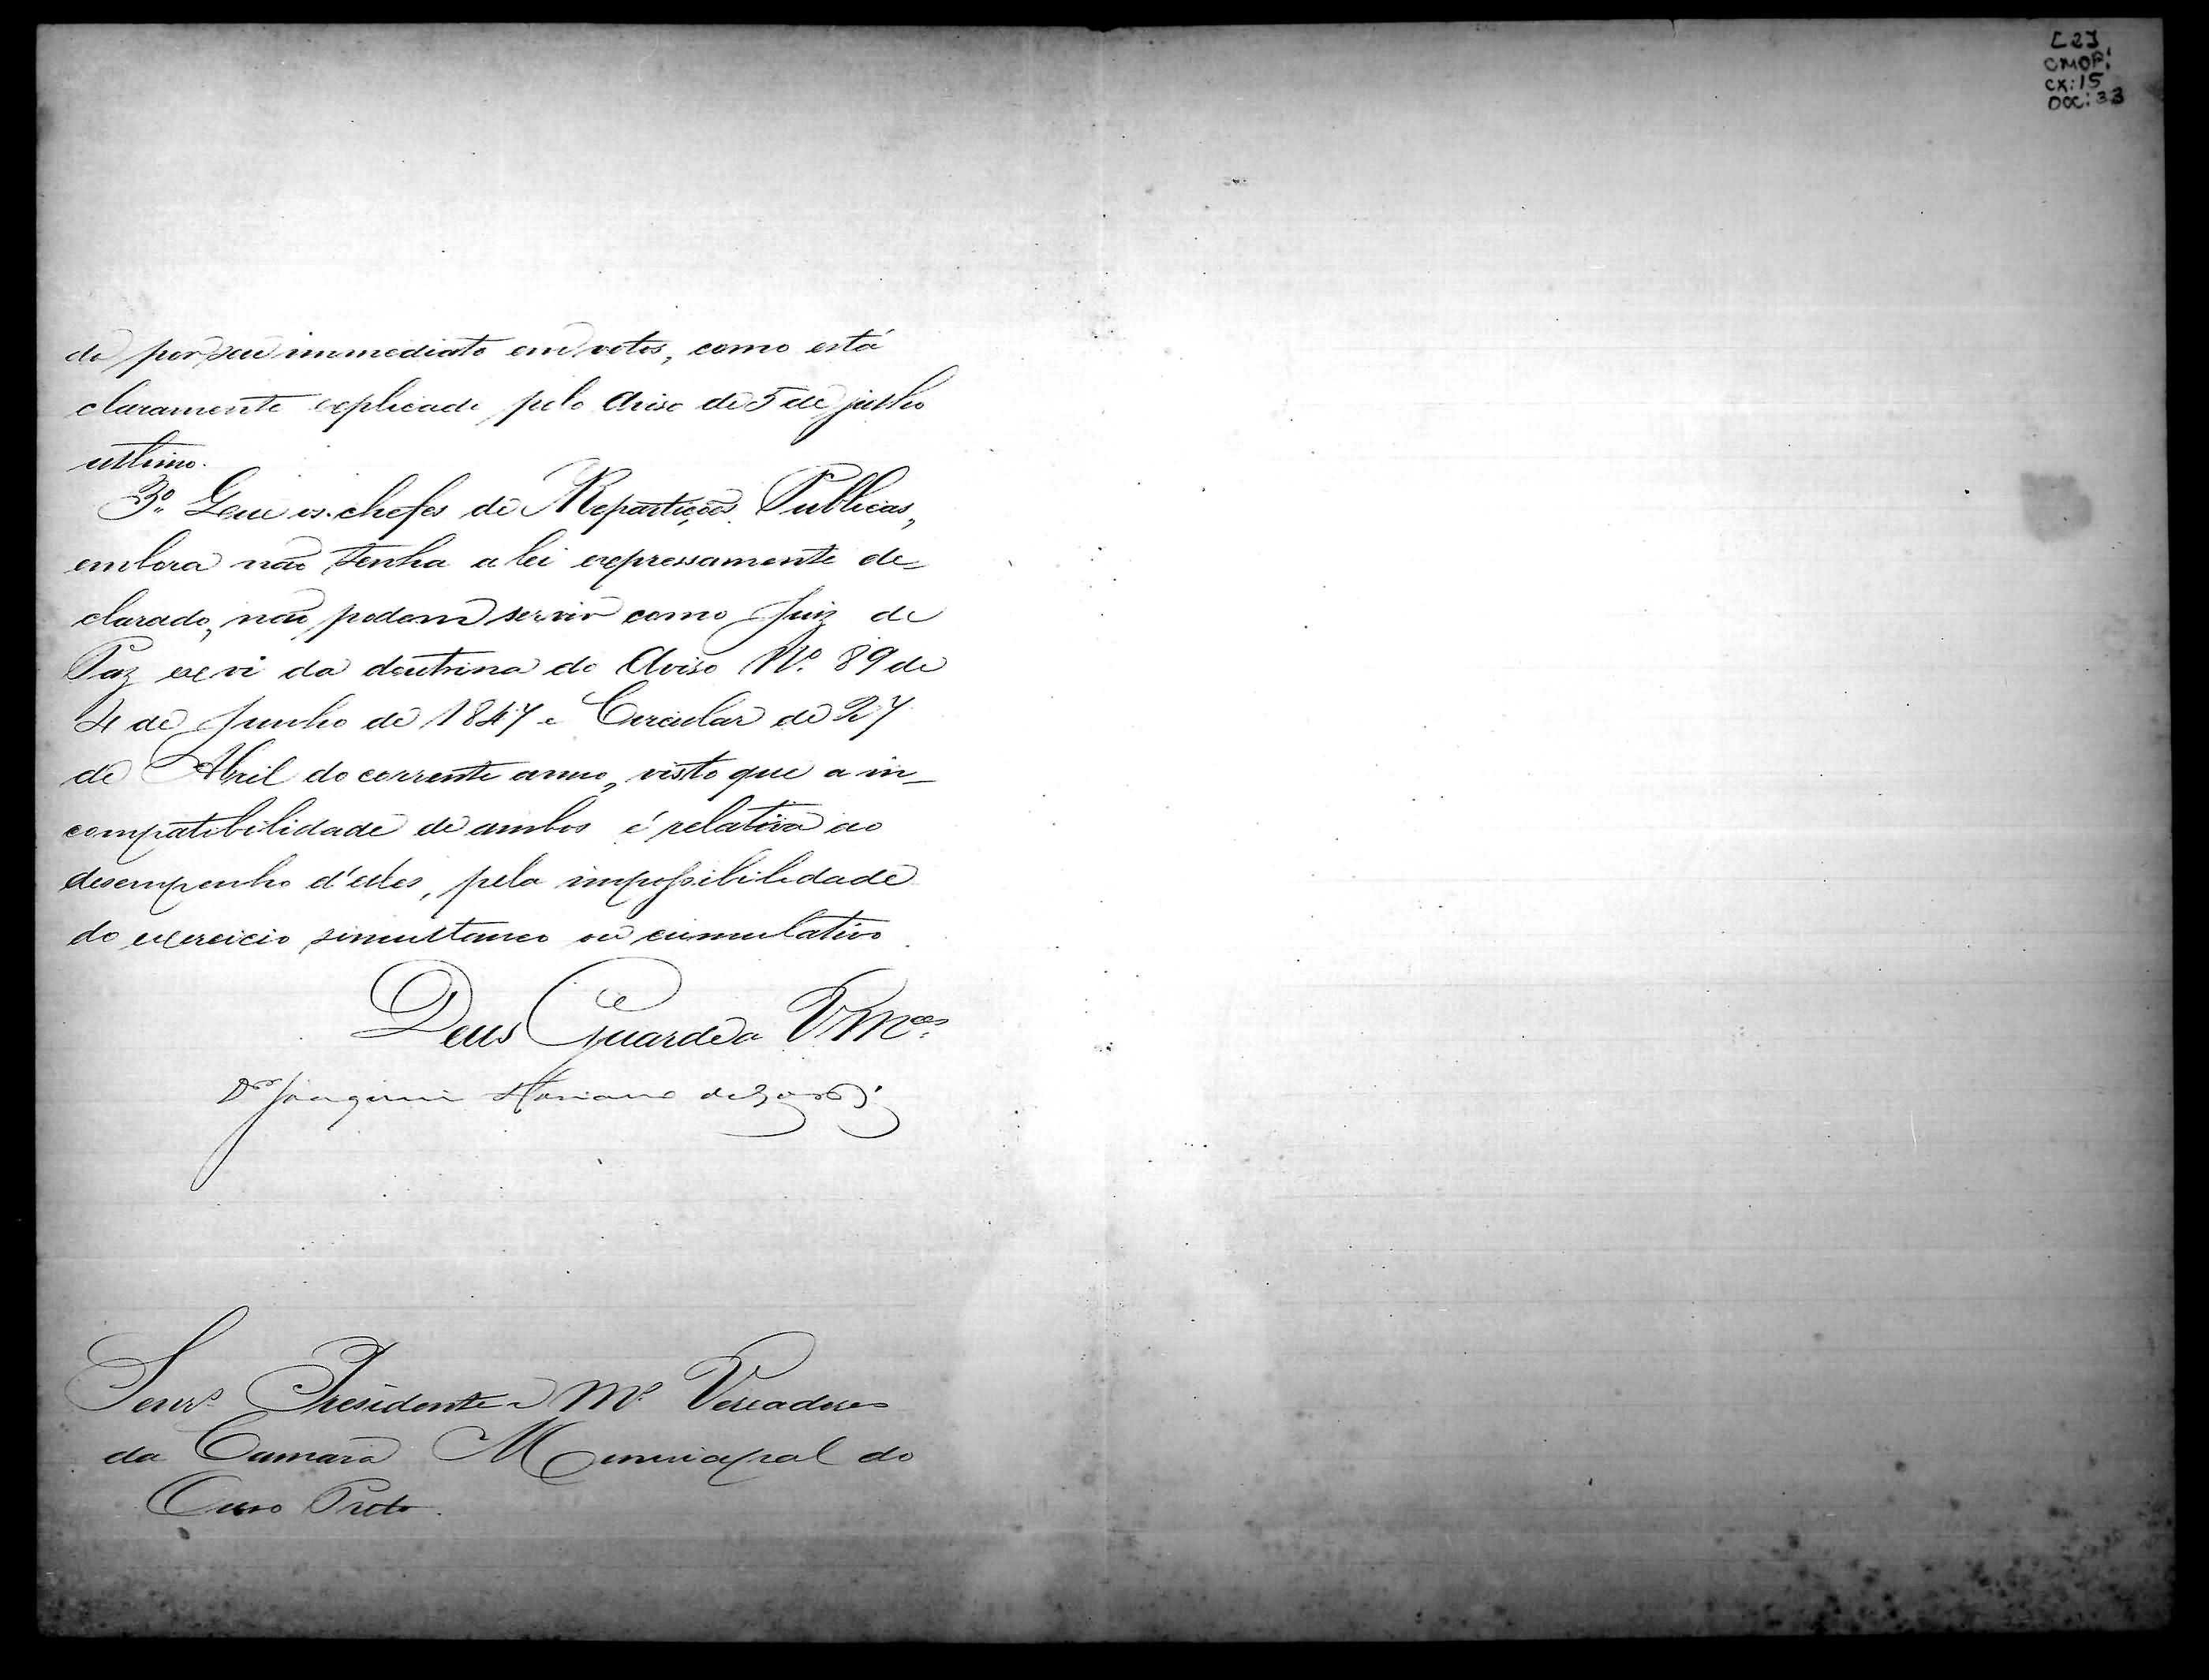 [2]
CMOP:
CX:15
DOC:33
do por seu immediato em votos, como está
claramente explicado pelo Aviso de 5 de julho
ultimo.
3º Que os chefes de Repartições Publicas,
embora não tenha a lei expressamente de-
clarado, não podem servir como Juiz de
Paz ex vi da doutrina do Aviso Nº 89 de
4 de Junho de 1847 e Circular de 27
de Abril do corrente anno, visto que a in-
compatibilidade de ambos é relativa ao
desempenho d'elles, pela impossibilidade
do exercicio simultaneo ou cumulativo.
Deus Guarde a VMces.
Dor Joaquim
Senrs Presidente e Ms Vereadores
da Camara Municipal do
Ouro Preto.